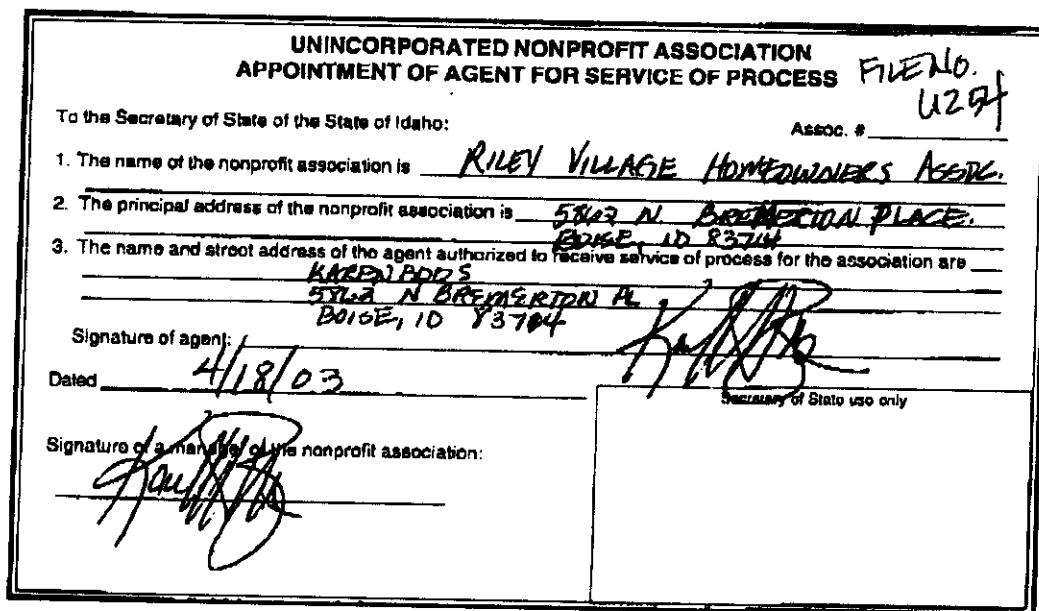 UNINCORPORATED NONPROFIT ASSOCIATION
APPOINTMENT OF AGENT FOR SERVICE OF PROCESS
FILE NO.
U254
To the Secretary of State of the State of Idaho:
Assoc. #
1. The name of the nonprofit association is RILEY VILLAGE HOMEOWNERS ASSOC.
2. The principal address of the nonprofit association is 5862 N. BREMERTON PLACE.
BOISE, ID 83714
3. The name and street address of the agent authorized to receive service of process for the association are
KAREN
5862 N BREMERTON PL
BOISE, ID 83704
Signature of agent:
Dated 4/18/03
Secretary of State use only
Signature of a manager of the nonprofit association: